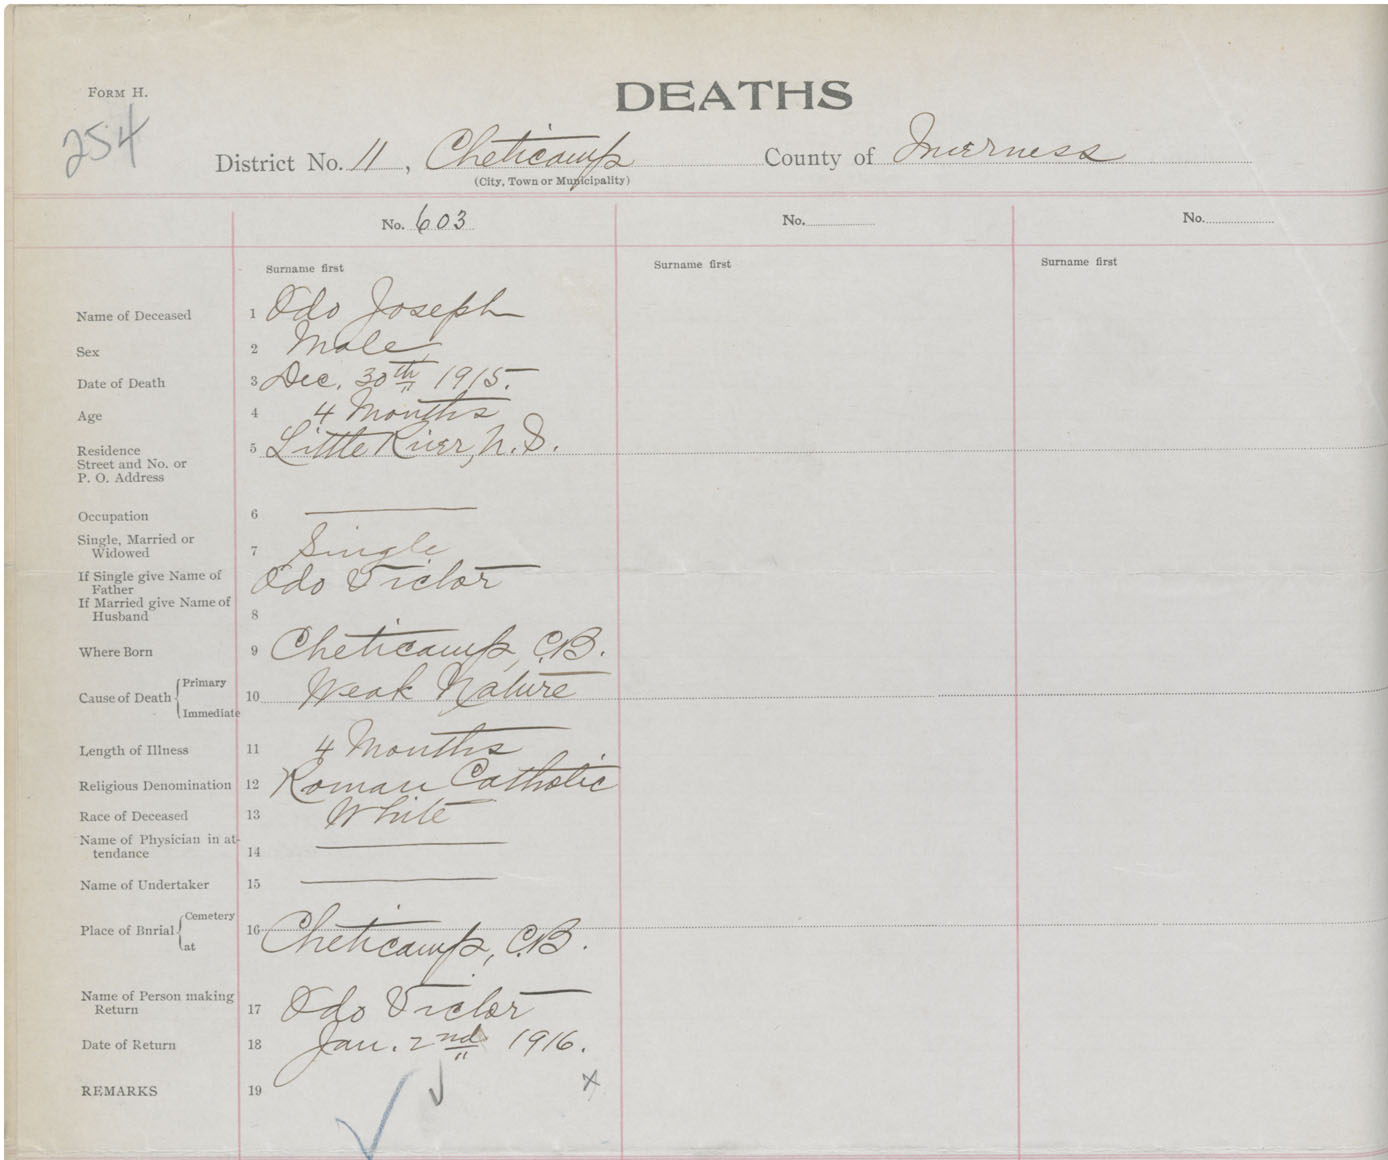 FORM H.
DEATHS
254
District No. 11, Cheticamp County of Inverness
(City, Town or Municipality)
No. 603 No. No.
Surname first Surname first Surname first
Name of Deceased 1 Odo Joseph
Sex 2 Male
Date of Death 3 Dec. 30th 1915.
Age 4 4 Months
Residence 5 Little River, N.S.
Street and No. or
P. O. Address
Occupation 6
Single, Married or
Widowed 7 Single
If Single give Name of Odo Victor
Father
If Married give Name of
Husband 8
Where Born 9 Cheticamp, C.B.
Primary
Cause of Death 10 Weak Nature
Immediate
Length of Illness 11 4 Months
Religious Denomination 12 Roman Catholic
Race of Deceased 13 White
Name of Physician in at-
tendance 14
Name of Undertaker 15
Cemetery
Place of Bnrial 16 Cheticamp, C.B.
at
Name of Person making
Return 17 Odo Victor
Date of Return 18 Jan. 2nd 1916.
REMARKS 19